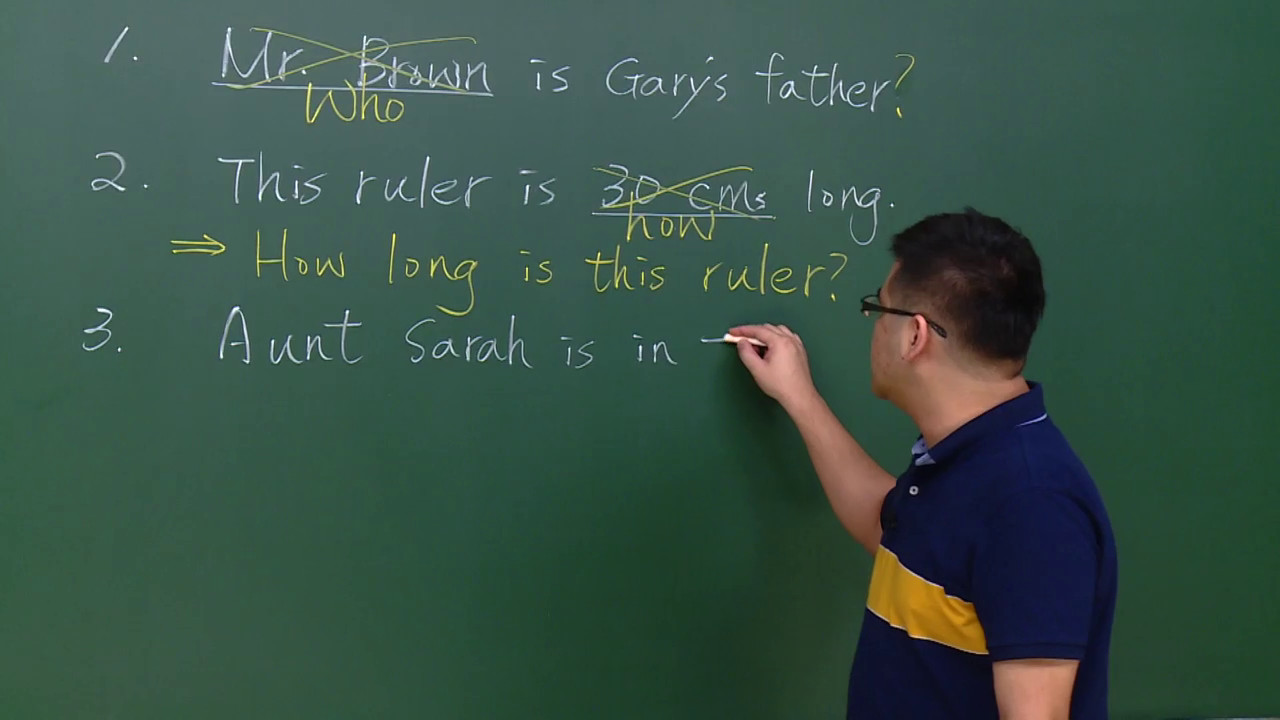 1. Mr. Brown is Gary's father?
Who
2. This ruler is 30 cms long.
how
⇒ How long is this ruler?
3. Aunt Sarah is in